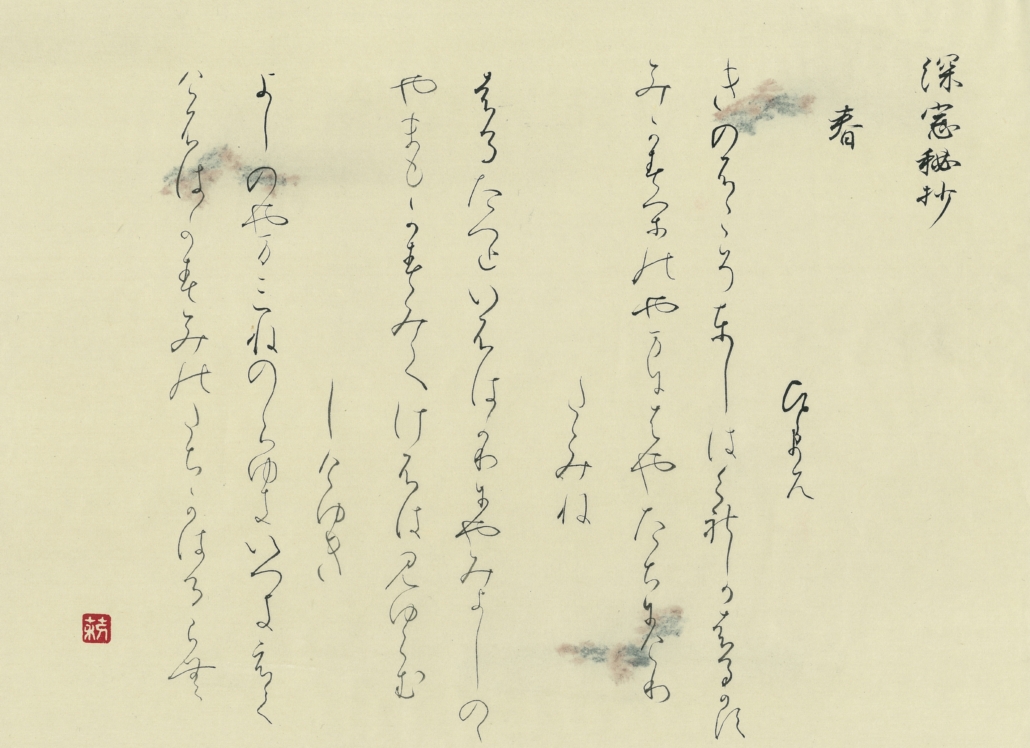 深窓秘抄
春
ひとまろ
きのふこそとしはくれしかはるかす
みかすかのやまにはやたちにけり
たゝみね
はるたつといふはかりにやみよしの
やまもかすみてけさは見ゆらむ
しけゆき
よしのやまみねのしらゆきいつきえて
けさはかすみのたちかはるらむ